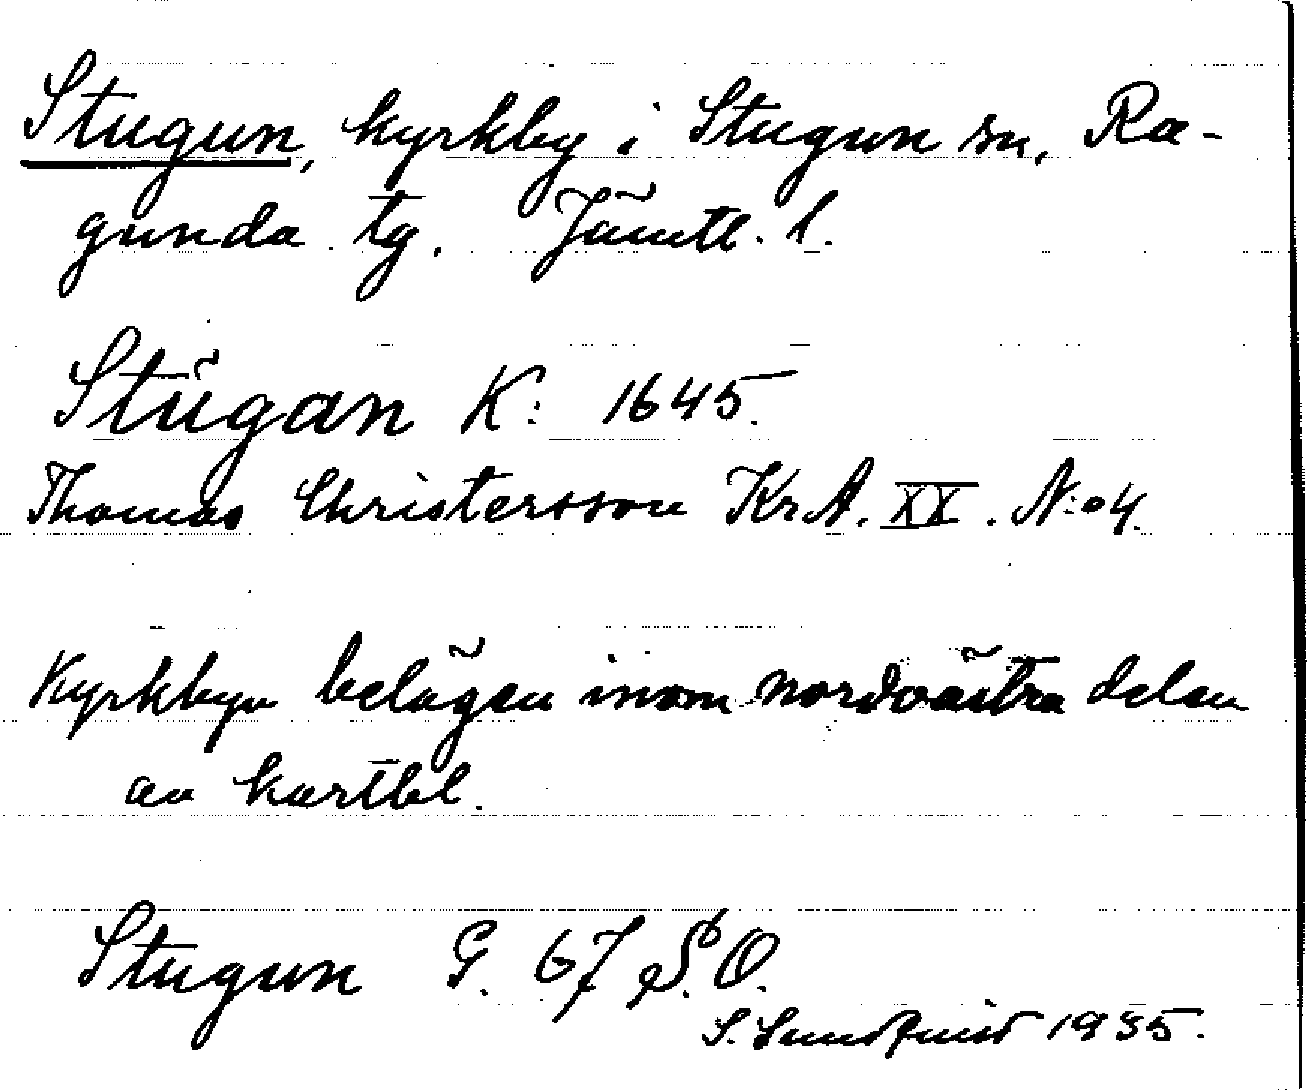 Stugun, kyrkby i Stugun sn, Ra-
gunda tg. Jämtl. l.
Stŭgan K: 1645.
Thomas Christersson KrA. XX. N:o 4.
Kyrkbyn belägen inom nordvästra delen
av kartbl.
Stugun G. 67 S.O.
S. Sundquist 1935.